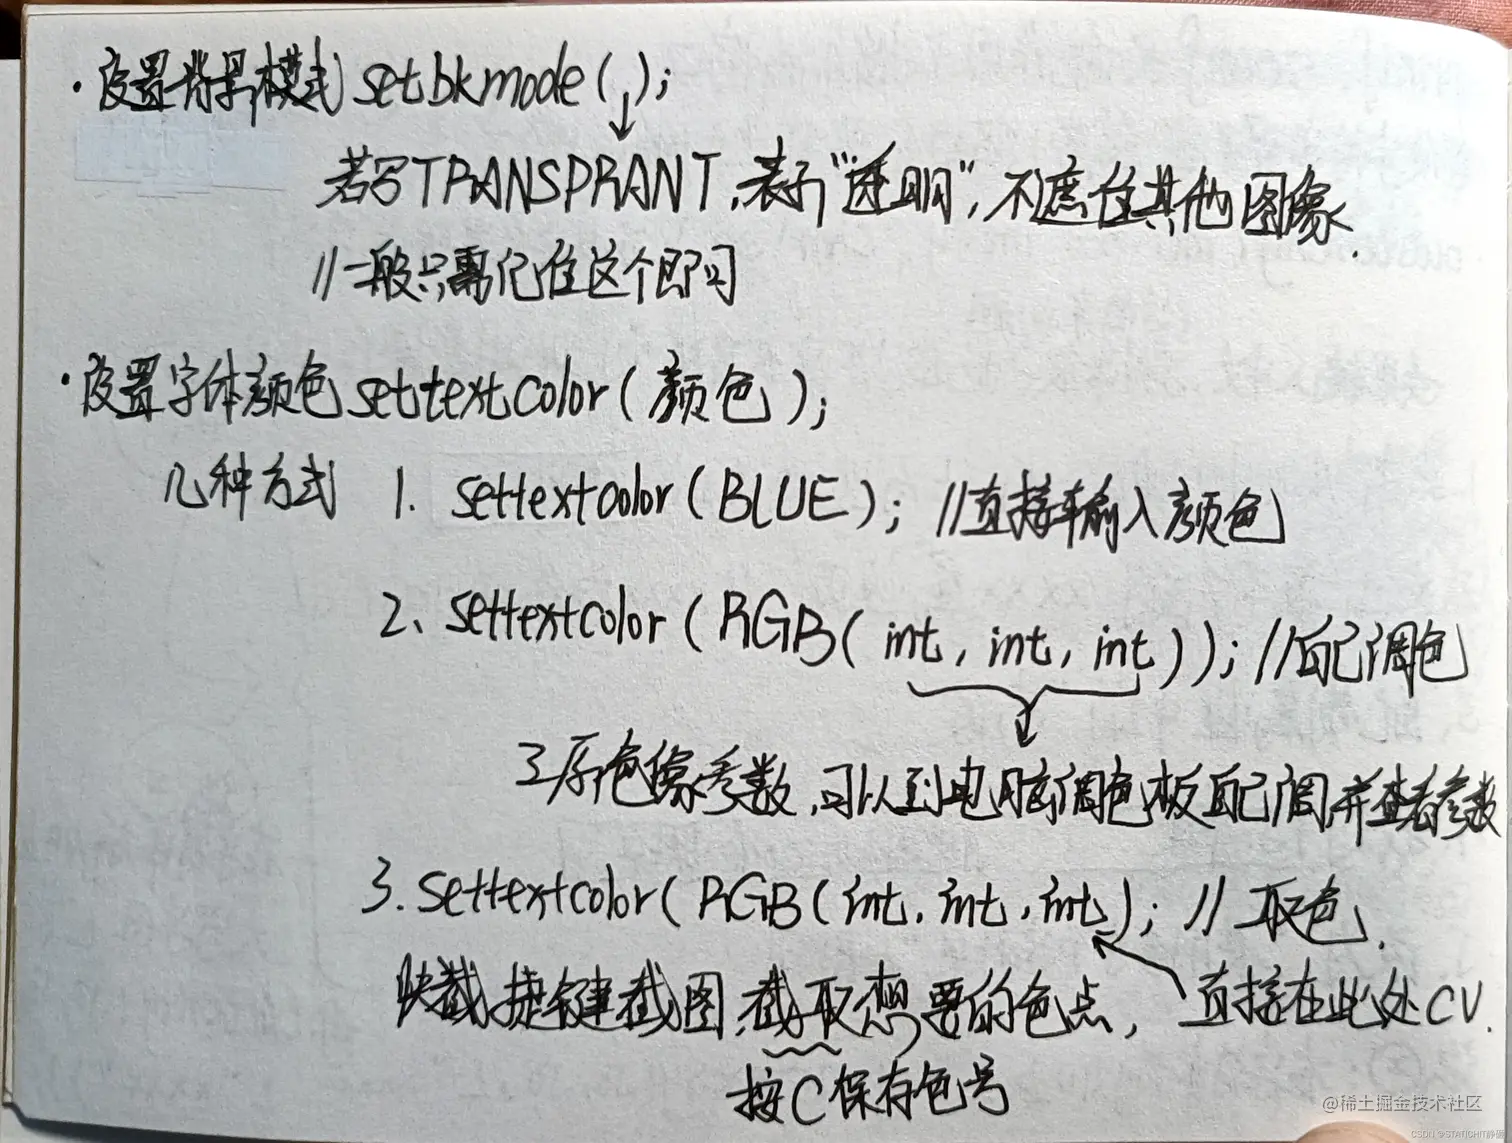 ·设置背景模式 setbkmode( );
若写TRANSPRANT,表示"透明",不遮住其他图象.
//一般只需记住这个即可
·设置字体颜色 settextcolor(颜色);
几种方式 1. settextcolor(BLUE); //直接输入颜色
2、settextcolor(RGB(int,int,int)); //自己调色
三原色像参数,可以到电脑调色板自己调,并查看参数
3. settextcolor(RGB(int,int,int); // 取色.
快截捷键截图,截取想要的色点, 直接在此处CV.
按C保存色号
@稀土掘金技术社区